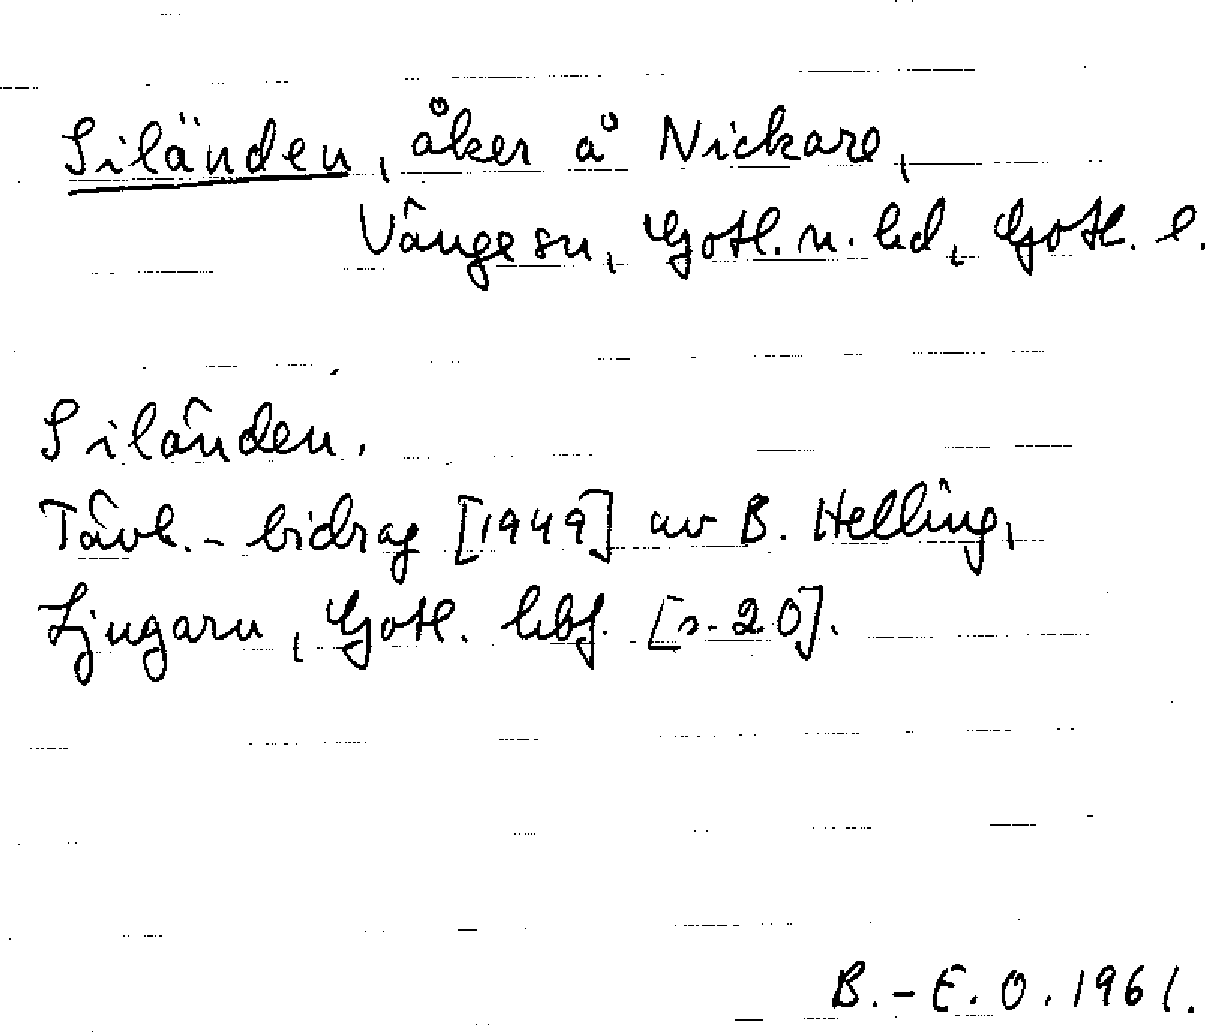 Siländen, åker å Nickare,
Vänge sn, Gotl. n. hd, Gotl. l.
Siländen.
Tävl.-bidrag [1949] av B. Helling,
Ljugarn, Gotl. hbf. [s. 20].
B.-E. O. 1961.